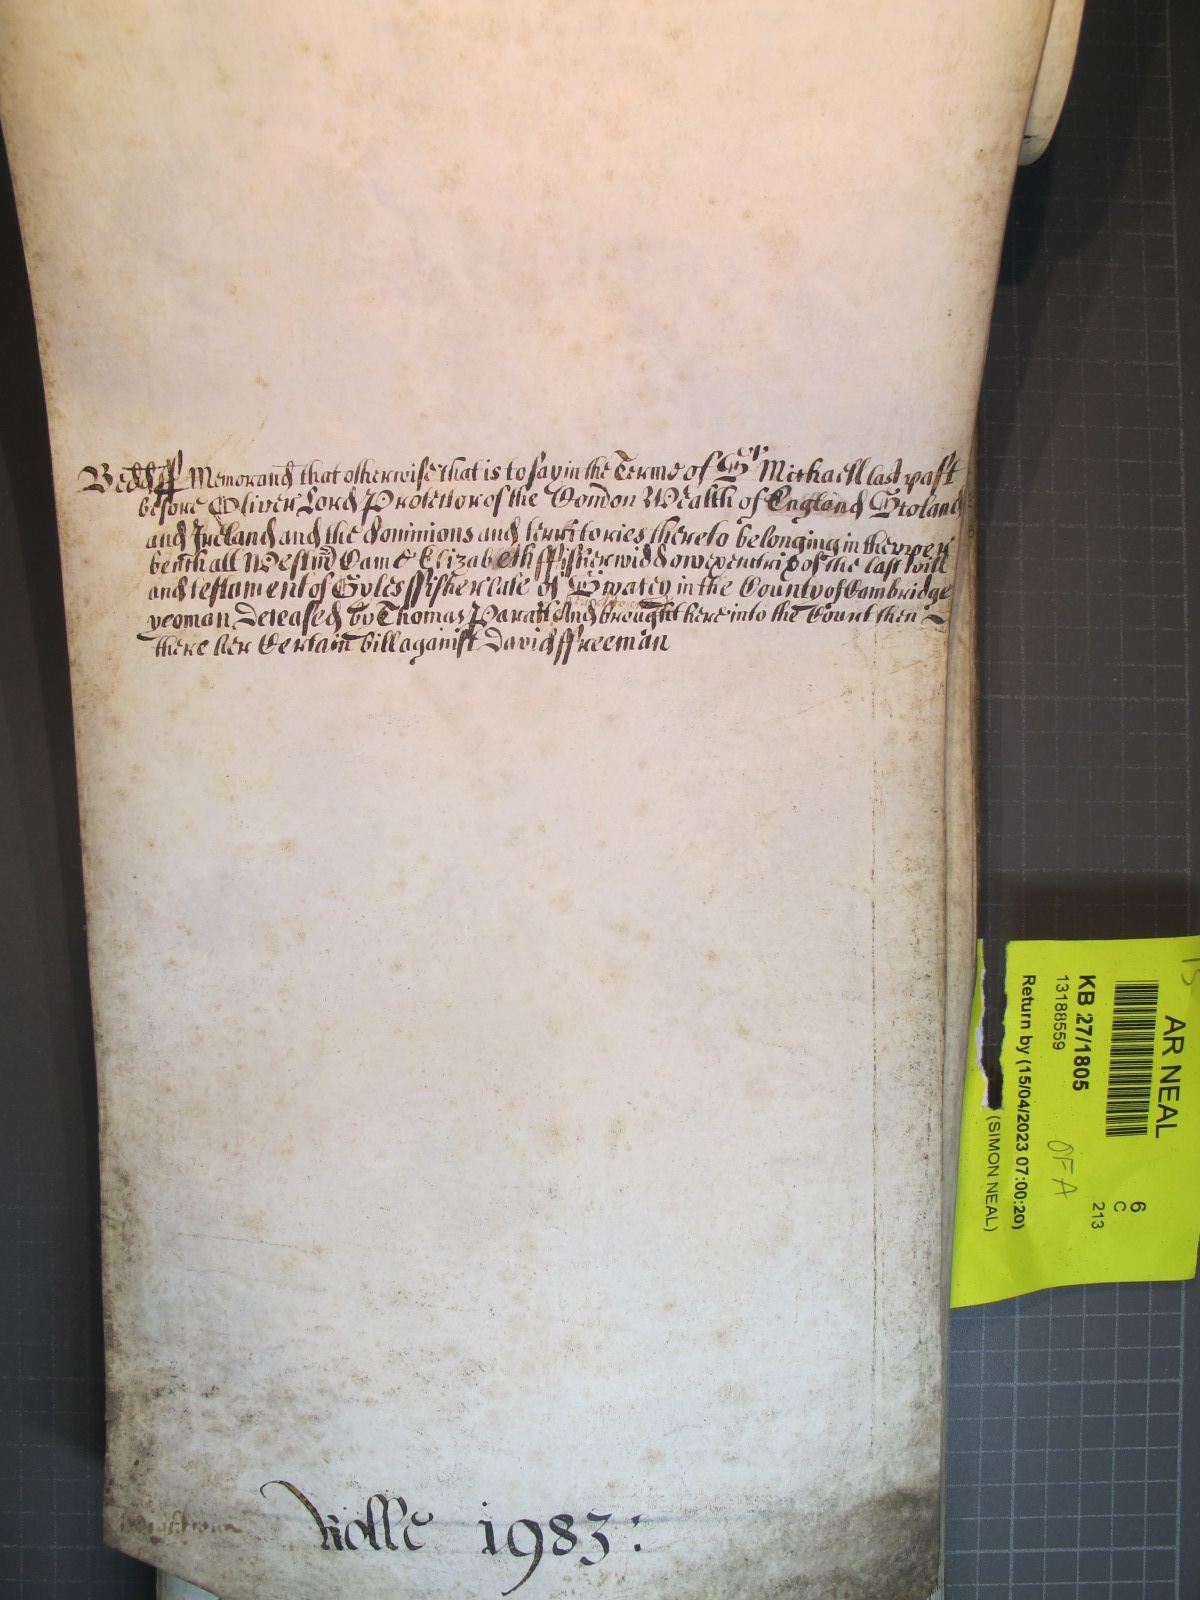 Bedd ff Memorand that otherwise that is to say in the Terme of St Michaell last past
before Oliver Lord Protector of the Comon Wealth of England Scotland
and Ireland and the dominions and territories thereto belonging in the upper
bench att Westmr Came Elizabeth ffisher widdow executrix of the last will
and testament of Gyles ffisher late of in the County of Cambridge
yeoman deceased by Thomas Paratt And brought here into the Court then
there her Certain bill against David ffreeman
Rolle 1983:
AR NEAL
KB 27/1805
13188559
Return by (15/04/2023 07:00:20)
(SIMON NEAL)
OFA
6
C
213
15